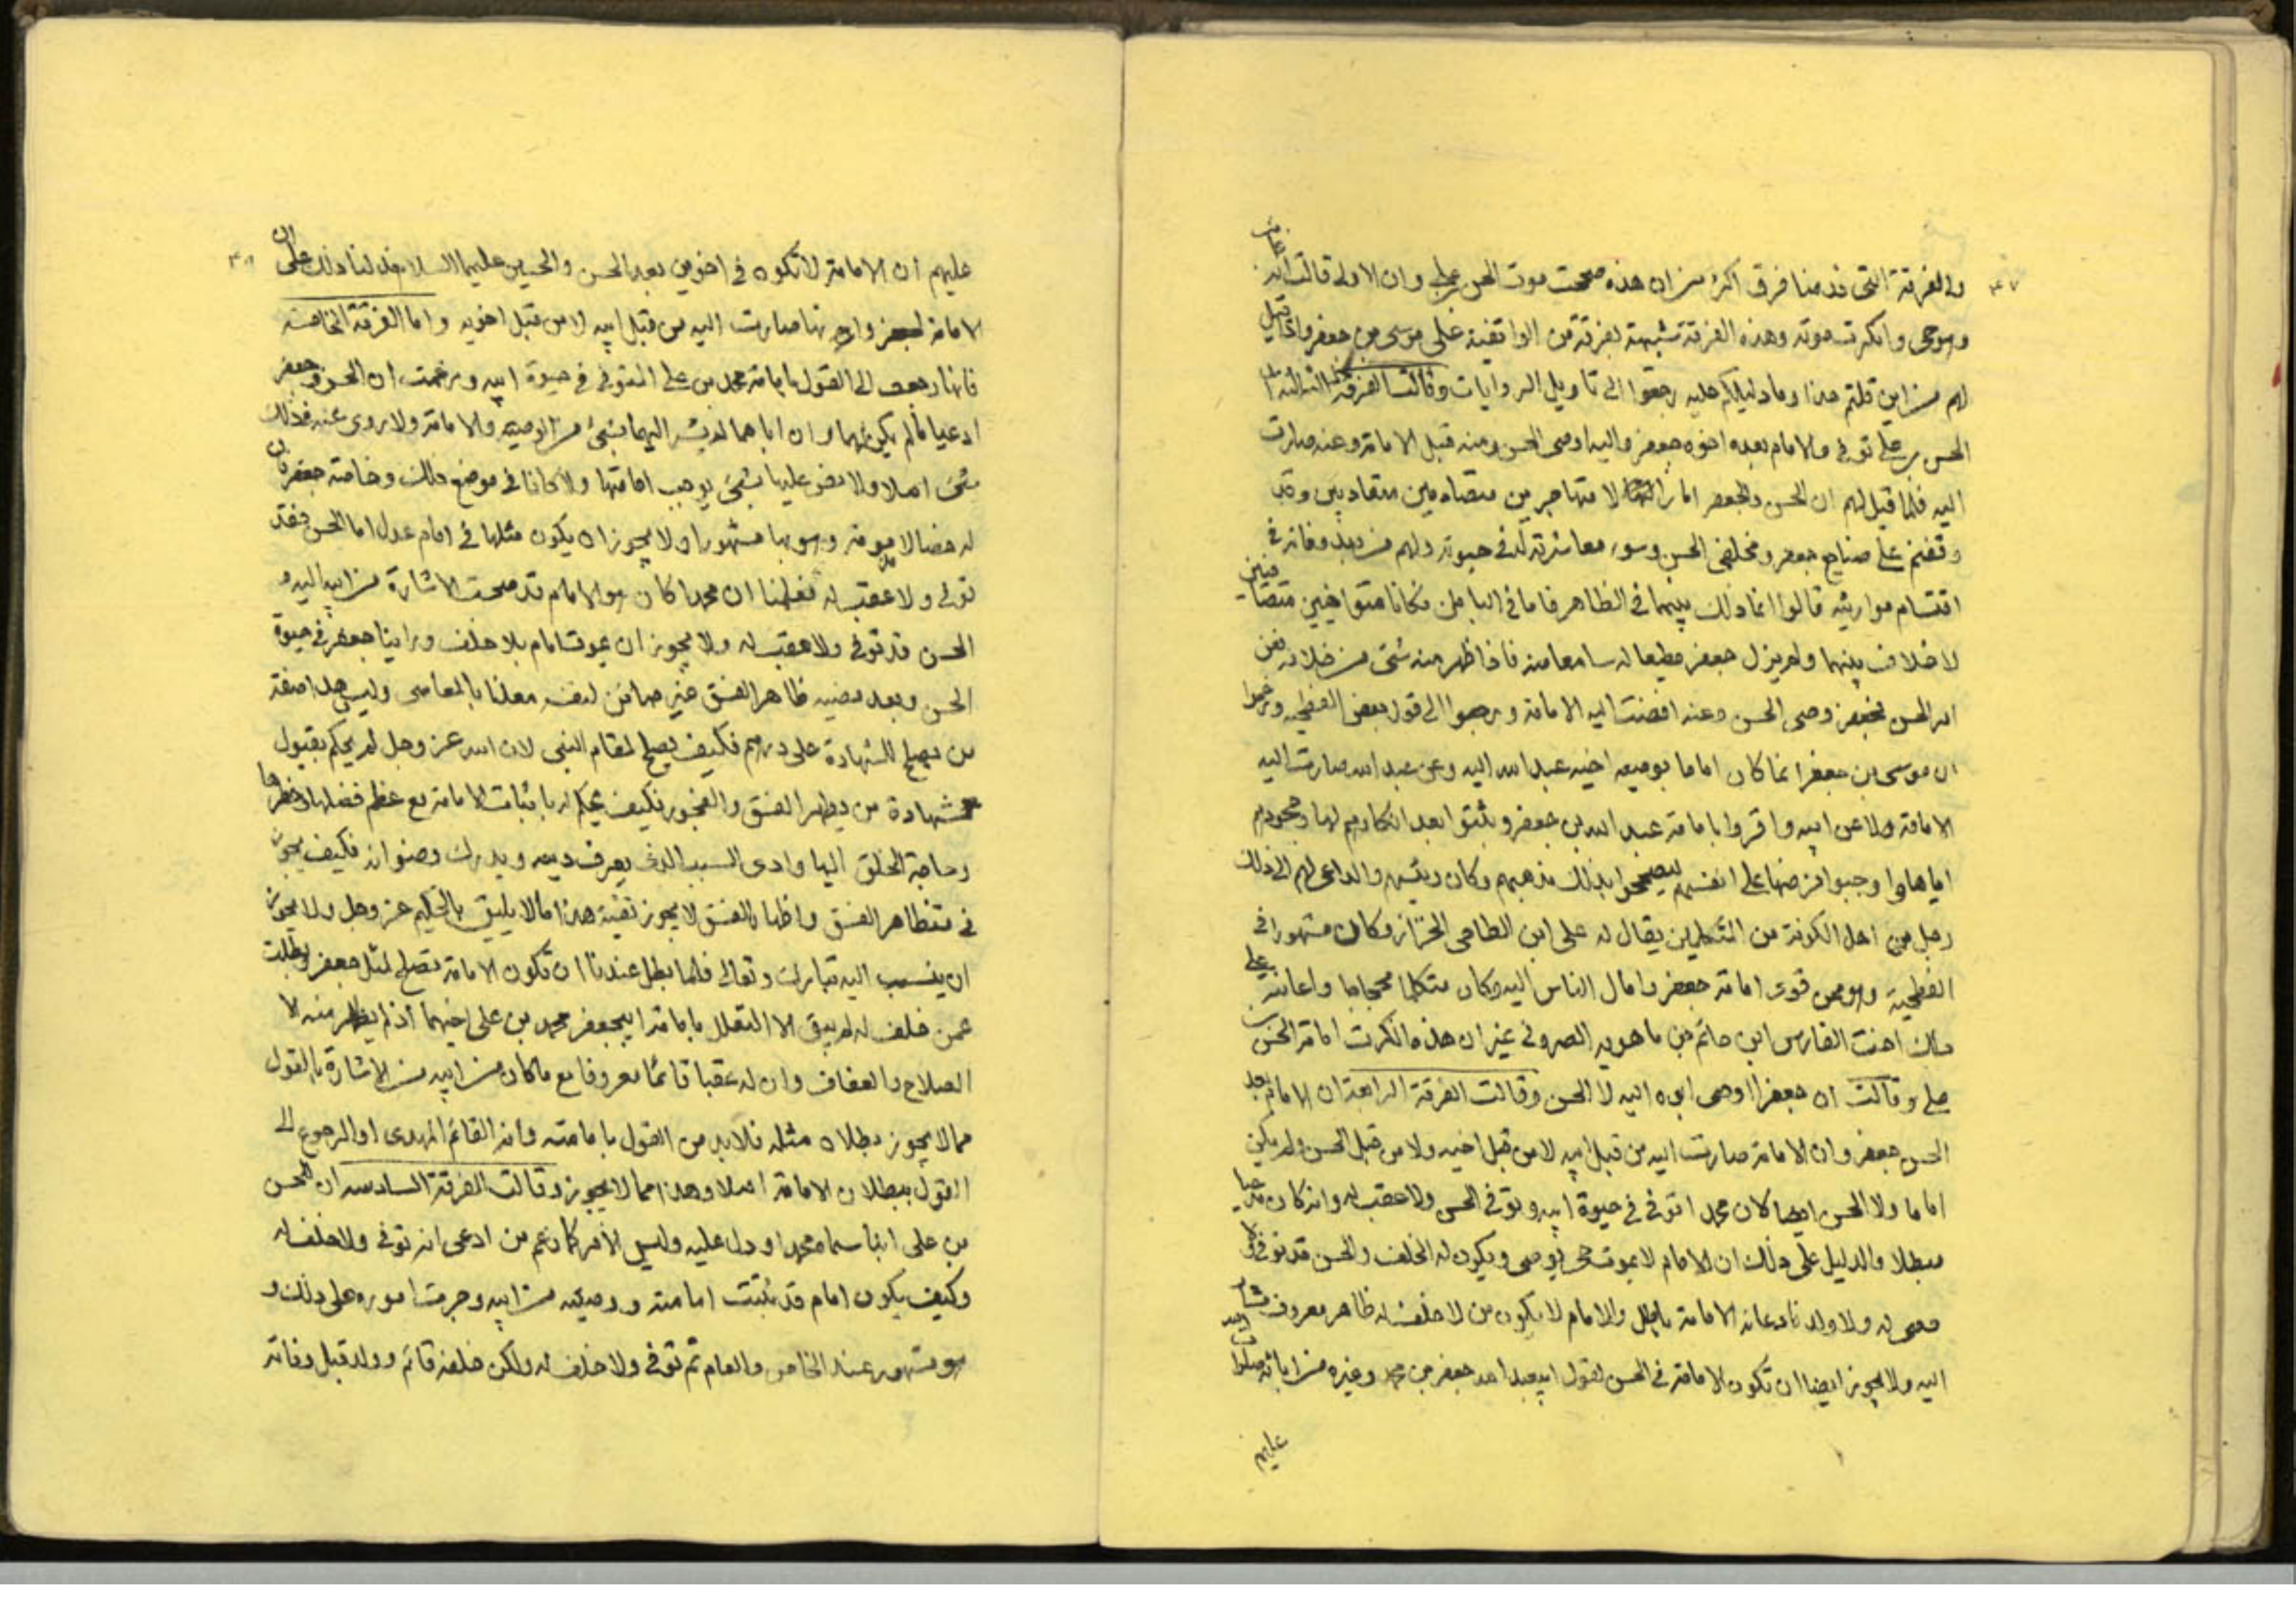 والفرقة التى قدمنا فرق اكثر من ان هذه صححت موت الحسن بن على وان الاولى قالت انه غاب
وهو حى وانكرت موته وهذه الفرقة شبيهة بفرقة من الواقفية على موسى بن جعفر واذا قيل
لهم من اين قلتم هذا وما دليلكم عليه رجعوا الى تاويل الروايات وقالت الفرقة الثالثة ان
الحسن بن على توفى والامام بعده اخوه جعفر واليه اوصى الحسن ومنه قبل الامامة وعنه صارت
اليه فلما قيل لهم ان الحسن وجعفر ما زالا متهاجرين متصارمين متعاديين وقد
وقفتم على صنايع جعفر ومخلفى الحسن وسوء معاشرته له فى حيوته ولهم من بعد وفاته فى
اقتسام مواريثه قالوا انما ذلك بينهما فى الظاهر فاما فى الباطن فكانا متواخيين متصافيين
لا خلاف بينهما ولم يزل جعفر مطيعا له سامعا منه فاذا ظهر منه شئ من خلافه فعن
امر الحسن فجعفر وصى الحسن وعنه افضت اليه الامامة ورجعوا الى قول بعض الفطحية وزعموا
ان موسى بن جعفر انما كان اماما بوصية اخيه عبد الله اليه وعن عبد الله صارت اليه
الامامة ولا عن ابيه واقروا بامامة عبد الله بن جعفر وثبتوا بعد انكارهم لها وجحودهم
اياها واوجبوا فرضها على انفسهم ليصححوا بذلك مذهبهم وكان رئيسهم والداعى لهم الى ذلك
رجل من اهل الكوفة من المتكلمين يقال له على ابن الطاحى الخزاز وكان مشهورا فى
الفطحية وهو ممن قوى امامة جعفر وامال الناس اليه وكان متكلما محجاجا واعانته على
ذلك اخت الفارس ابن حاتم بن ماهويه القزوينى غير ان هذه انكرت امامة الحسن بن
على وقالت ان جعفرا اوصى ابوه اليه لا الحسن وقالت الفرقة الرابعة ان الامام بعد
الحسن جعفر وان الامامة صارت اليه من قبل ابيه لا من قبل اخيه ولا من قبل الحسن ولم يكن
اماما ولا الحسن ايضا لان محمدا توفى فى حيوة ابيه وتوفى الحسن ولا عقب له وانه كان مدعيا
مبطلا والدليل على ذلك ان الامام لا يموت حتى يوصى ويكون له الخلف والحسن قد توفى ولا
وصى له ولا ولد فادعائه الامامة باطل والامام لا يكون من لا خلف له ظاهر معروف مشار
اليه ولا يجوز ايضا ان تكون الامامة فى الحسن لقول ابى عبد الله جعفر بن محمد وغيره من ابائه صلوات الله
عليهم
عليهم ان الامامة لا تكون فى اخوين بعد الحسن والحسين عليهما السلام فدلنا ذلك على ان
الامامة لجعفر وانها صارت اليه من قبل ابيه لا من قبل اخويه واما الفرقة الخامسة
فانها رجعت الى القول بامامة محمد بن على المتوفى فى حيوة ابيه وزعمت ان الحسن وجعفر
ادعيا ما لم يكن لهما وان اباهما لم يشر اليهما بشئ من الوصية والامامة ولا روى عنه فى ذلك
شئ اصلا ولا نص عليهما بشئ يوجب امامتهما ولا كانا فى موضع ذلك وخاصة جعفر فان
له خصالا مذمومة وهو بها مشهورا ولا يجوز ان يكون مثلها فى امام عدل اما الحسن فقد
توفى ولا عقب له فعلمنا ان محمدا كان هو الامام قد صحت الاشارة من ابيه اليه و
الحسن قد توفى ولا عقب له ولا يجوز ان يموت امام بلا خلف ورأينا جعفر فى حيوة
الحسن وبعد مضيه ظاهر الفسق غير صائن لنفسه معلنا بالمعاصى وليس هذا صفة
من يصلح للشهادة على درهم فكيف يصلح لمقام النبى لان الله عز وجل لم يحكم بقبول
شهادة من يظهر الفسق والفجور فكيف يحكم له باثبات الامامة مع عظم فضلها وخطرها
وحاجة الخلق اليها وادى السبب الذى يعرف دينه ويدرك رضوانه فكيف يجوز
فى متظاهر الفسق واظهار الفسق لا يجوز تقية هذا ما لا يليق بالحكيم عز وجل ولا يجوز
ان ينسب اليه تبارك وتعالى فلما بطل عندنا ان تكون الامامة تصلح لمثل جعفر وبطلت
عمن خلف له لم يبق الا التعلل بامامة ابى جعفر محمد بن على اخيهما اذ لم يظهر منه الا
الصلاح والعفاف وان له عقبا قائما معروفا مع ما كان من ابيه من الاشارة بالقول
مما لا يجوز بطلان مثله فلابد من القول بامامته وانه القائم المهدى او الرجوع الى
القول ببطلان الامامة اصلا وهذا مما لا يجوز وقالت الفرقة السادسة ان للحسن
بن على ابنا سماه محمدا ودل عليه وليس الامر كما زعم من ادعى انه توفى ولا خلف له
وكيف يكون امام قد ثبتت امامته ووصيته من ابيه وجرت اموره على ذلك و
هو مشهور عند الخاص والعام ثم توفى ولا خلف له ولكن خلفه قائم وولد قبل وفاته